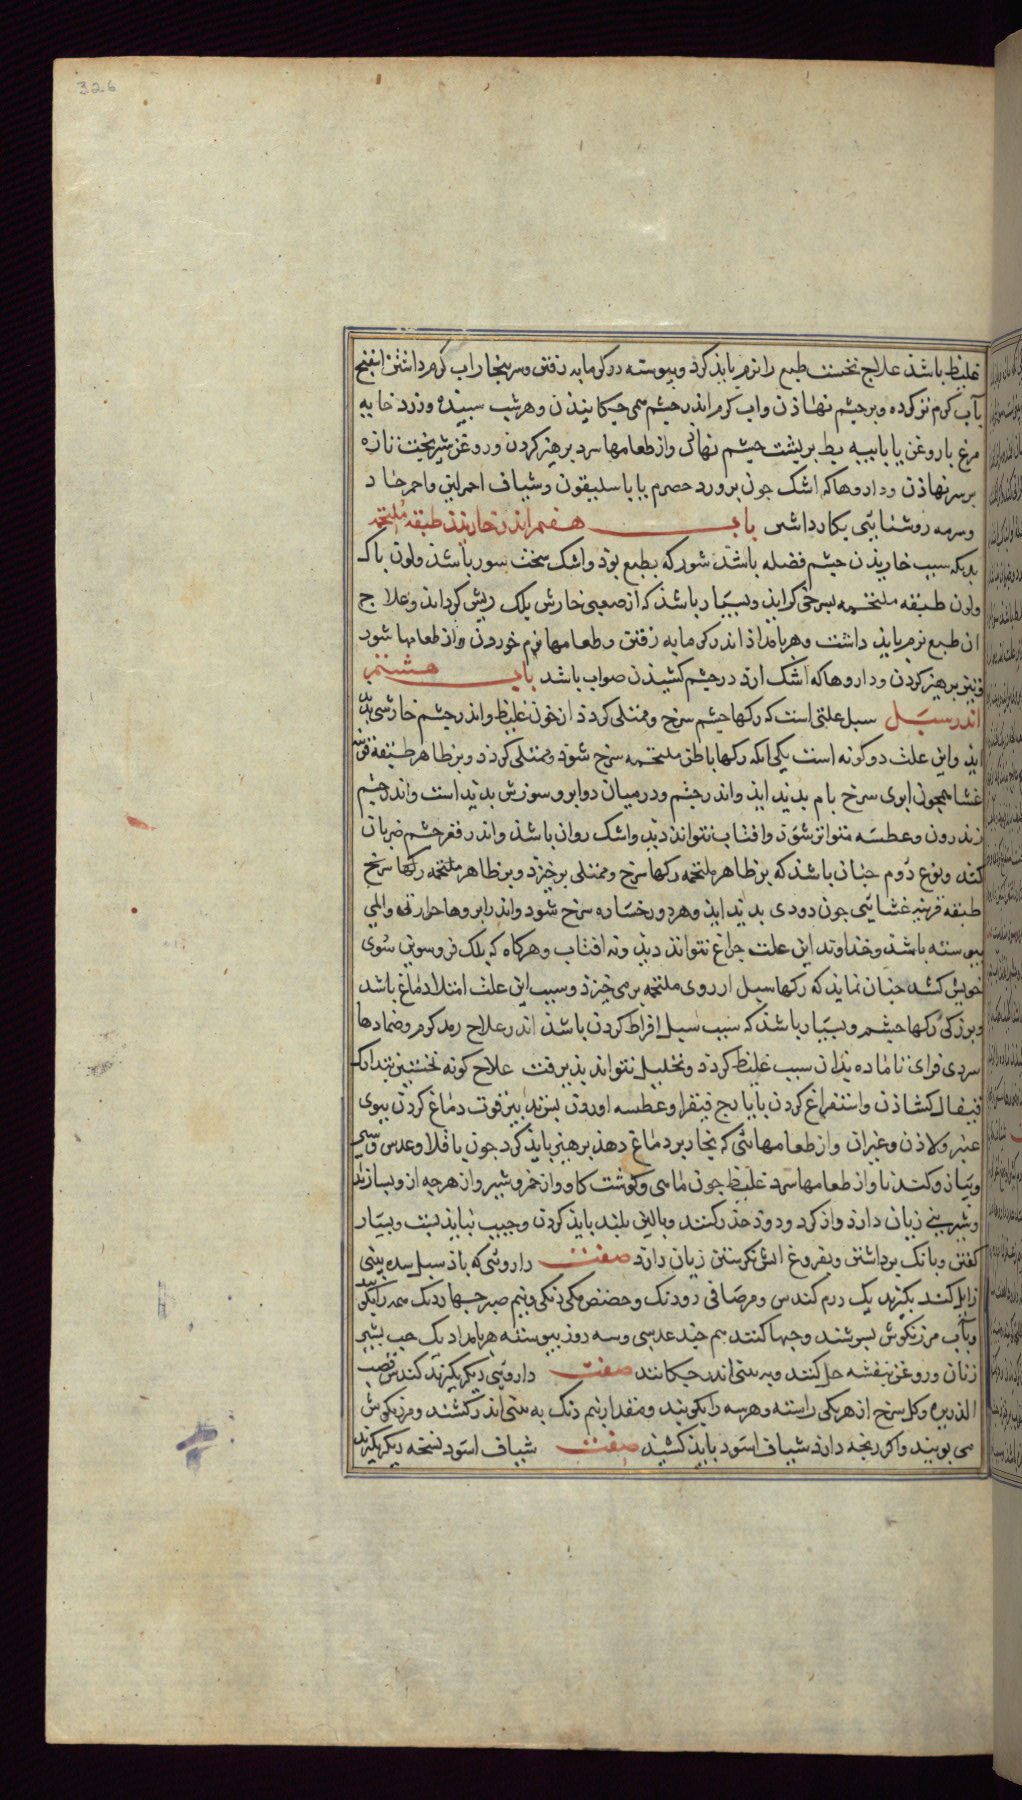 326
غلیظ باشد علاج نخست طبع را نرم باید کرد و پیوسته در کرمابه رفتن و سر ببخار اب کرم داشتن اسفنج
بآب کرم تر کرده و بر چشم نهاذن و اب کرم اندر چشم می چکانیدن و هر شب سبیده و زرد خایه
مرغ با روغن یا با پیه بط بر پشت چشم نهاذن و از طعامها سرد برهیز کردن و روغن شیر پخت تازه
بر سر نهاذن و داروها که اشک جون برورد حصرم یا باسلیقون و شیاف احمر لین و احمر حاد
و سرمه روشنایی بکار داشتن باب هفتم اندر خاریدن طبقه ملتحمه
بدانکه سبب خاریدن چشم فضله باشد شور که بطبع بود و اشک سخت سور باشد و لون باک
و لون طبقه ملتحمه بسرخی کراید و بسیار باشد که از صعبی خارش پلک ریش کرداند و علاج
ان طبع نرم باید داشت و هر بامداذ اندر کرمابه رفتن و طعامها نرم خوردن و از طعامها شور
و تیز برهیز کردن و داروها که اشک ارد در چشم کشیدن صواب باشد باب هشتم
اندر سبل سبل علتی است که رکها چشم سرخ و ممتلی کردد از خون غلیظ و اندر چشم خارشی پدید
اید و این علت دو کونه است یکی انکه رکها باطن ملتحمه سرخ شود و ممتلی کردد و بر ظاهر طبقه قرنیه
غشا همچون ابری سرخ بام بدید اید و اندر چشم و در میان دو ابرو سوزش بدید است و اندر چشم
زند رون و عطسه متواتر شود و افتاب نتواند دید و اشک روان باشد و اندر قعر چشم ضربان
کند و نوع دوم چنان باشد که بر ظاهر ملتحمه رکها سرخ و ممتلی برخیزد و بر ظاهر ملتحمه رکها سرخ
طبقه قرنیه غشایی جون دودی بدید اید و هر دو رخساره سرخ شود و اندر ابروها حرارتی و المی
پیوسته باشد و خداوند این علت جراغ نتواند دید و نه افتاب و هرکاه که پلک فروسوین سوی
خویش کشد چنان نماید که رکها سبل از روی ملتحمه برمی خیزد و سبب این علت امتلا دماغ باشد
و بزرکی رکها چشم و بسیار باشد که سبب سبل افراط کردن باشد اندر علاج رمد کرم و ضمادها
سردی فزای تا ماده بدان سبب غلیظ کردد و تحلیل نتواند پذیرفت علاج کونه نخستین نبدا رک
قیفال کشاذن و استفراغ کردن با یارج فیقرا و عطسه اوردن بس تدبیر قوت دماغ کردن ببوی
عنبر و لاذن و غیران و از طعامهائی که بخار بر دماغ دهد برهیز باید کرد جون باقلا و عدس و سیر
و پیاز و کندنا و از طعامها سرد غلیظ جون ماهی و کوشت کاو و از خمر و شیر و از هرچه از وی سازند
و شیرینی زیان دارد و از کرد و دود حذر کنند و بالین بلند باید کردن و جیب نباید بست و بسیار
کفتن و بانک برداشتن و بفروغ اتش نکرستن زیان دارد صفت داروئی که باد سبل سده بینی
زایل کند بکیرند یک درم کندس و مر صافی دو دنک و حضض مکی دنکی و نیم صبر چهار دنک همه را بکوبند
و بآب مرزنکوش بسرشند و حبها کنند هم چند عدسی و سه روز پیوسته هر بامداد یک حب بشیر
زنان و روغن بنفشه حل کنند و به بینی اندر چکانند صفت داروئی دیکر بکیرند کندس قصب
الذریره و کل سرخ از هر یکی راسته و هر سه را بکوبند و مقدار نیم دنک به بینی اندر کشند و مرزنکوش
می بویند و اکر رنجه دارد شیاف اسود باید کشید صفت شیاف اسود نسخه دیکر بکیرند